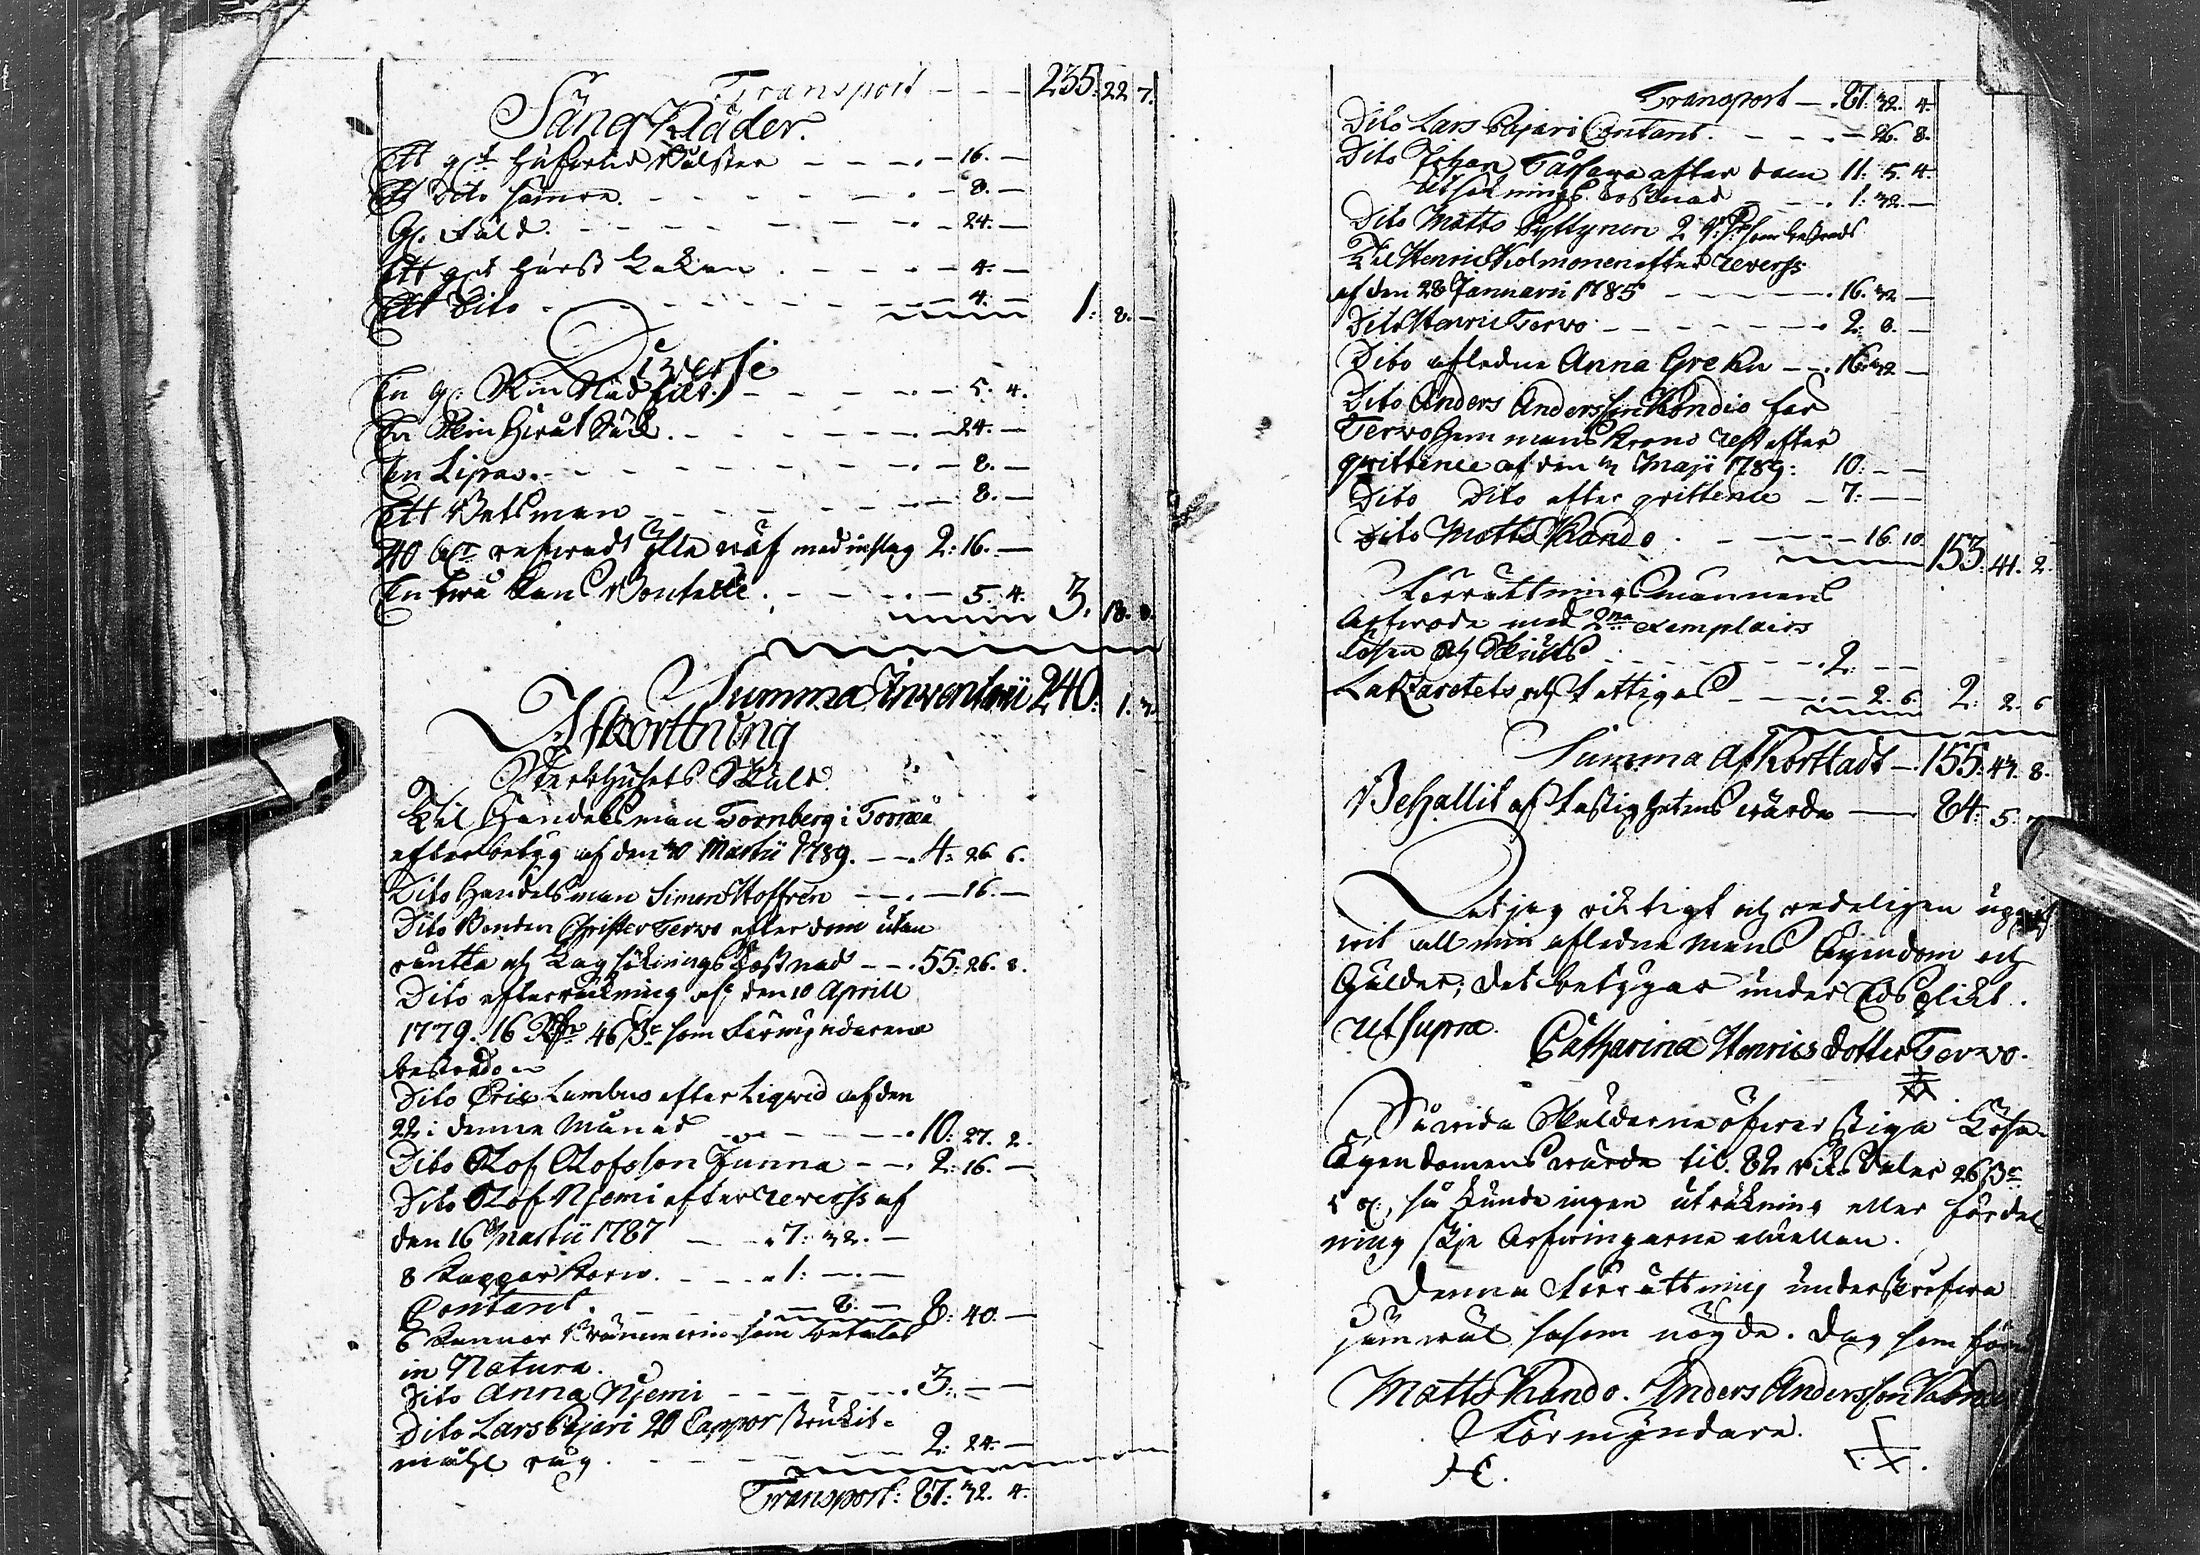 Transport - - - 235: 22. 7.
Säng Kläder.
Ett g:lt Hufwud Bålster - - - - 16. -
Ett Dito sämre. - - - - 8. -
Gl. Fäld. - - - - 24. -
Ett g:lt - - - - 4. -
Ett Dito - - - - 4. - 1: 8. -
Diverse
En gl. Skin - - - - 5. 4.
En Skin Säck. - - - - 24. -
En Lipas. - - - - 8. -
Ett Betsman - - - - 8. -
40 med inslag 2: 16. -
En twå Kans Boutelle. - - - 5. 4. 3. 18. 8.
Summa Inventarii 240: 1. 3.
Afkorttning
Sterbhusets Skuld.
Til Handelsman Tornberg i Torneå
efter betyg af den 30 Martii 1789. - - 4: 26 6.
Dito Handelsman Simon Hoffrén - - - 16. -
Dito Bonden Christer Tervo efter dom utan
räntta och Lagsöknings Kostnad - - 55: 26. 8.
Dito efter räkning af den 10 Aprill
1779. 16 Rdr 46 sk. som Förmyndarene
bestrida
Dito Eric Lambus efter Liqvid af den
22 i denna Månad - - - 10: 27. 2.
Dito Olof Olofsson Junna - - 2: 16. -
Dito Olof Njemi efter Reverss af
den 16 Martii 1787 - - 7: 32. -
8 Kappar Korn. - - - 1: - -
Contant. - - - 8. - 8: 40. -
6 Kannor Bränwin som betalas
in Natura.
Dito Anna Njemi - - - 3: - -
Dito Lars Pajari 20 Cappor
råg - - - 2: 24. -
Transport: 87: 32. 4.
Transport - 87: 32. 4.
Dito Lars Pajari Contant. - - - 26. 8.
Dito Johan efter dom 11: 5. 4.
Kostnad - - 1: 32. -
Dito Matts Pyttynen 2 som bestrids
Til Henric Kolmonen efter Reverss
af den 28 Januarii 1785 - - - 16. 32 -
Dito Henric Tervo - - - 2: 8. -
Dito afledne Anna Greku - - 16: 32 -
Dito Anders Andersson Kandio för
Tervo Hemmans Krono rest efter
qvittence af den Maji 1789: 10: - -
Dito Dito efter qvittence - 7: - -
Dito Matts Kando. - - - 16. 10. 153: 41. 2.
Förrättnings Männens
Arfwode med 2ne exemplairs
lösen och Skjuts - - - 2: - -
Latzaretets och Fattigas - - - 2. 6. 2: 2. 6
Summa Afkorttadt - 155: 43. 8.
Behållit af Fastighetens wärde - 84: 5. 7
At jag riktigt och redeligen uppgif
wit all min afledne Mans Egendom och
Gälder; det betygar under Eds plikt.
Ut supra. Catharina Henricsdotter Tervo.
Såwida Skulderne öfwerstiga Lösa
Egendomens wärde til 82 Riksdaler 26 sk.
5 så kunde ingen uträkning eller fördel
ning skje Arfwingarne emellan.
Denna Förrättning underskrefwa
jämwäl såsom nögde. Dag som förr
Matts Kando. Anders Andersson Kandio
Förmyndare.